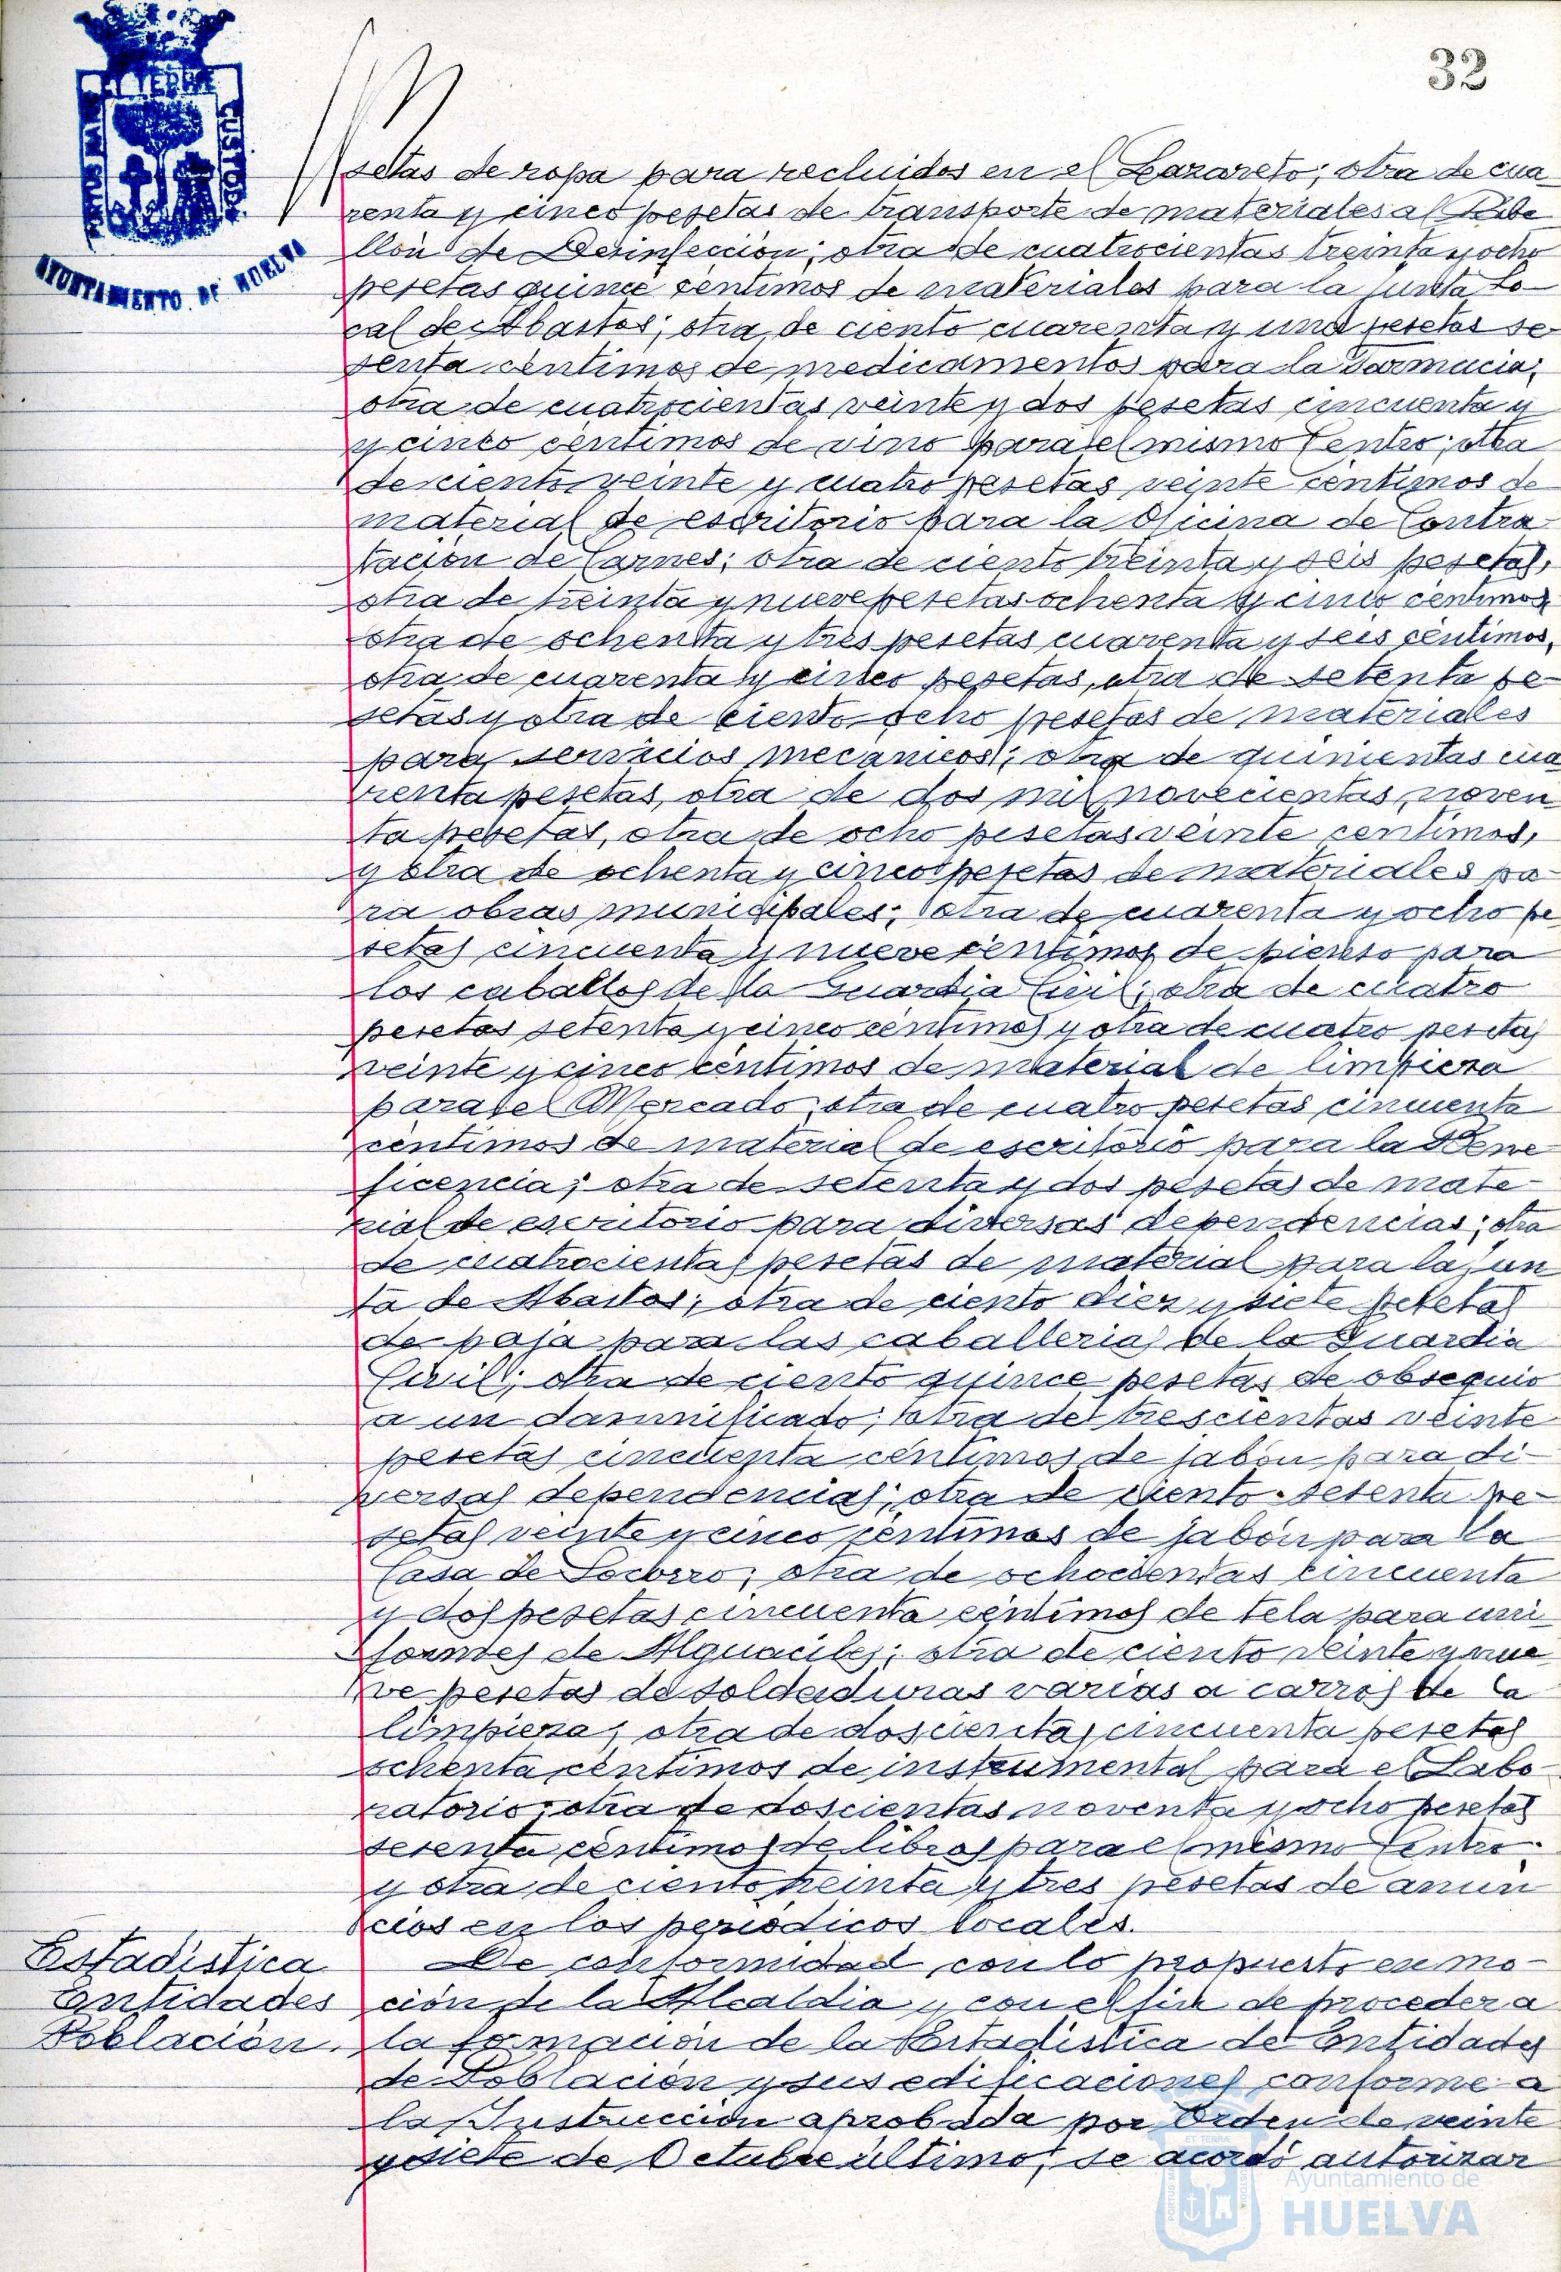 32
ET TERRAE
PORTUS MARIS
CUSTODIA
AYUNTAMIENTO DE HUELVA
setas de ropa para recluidos en el Lazareto; otra de cua-
renta y cinco pesetas de transporte de materiales al Pabe
llón de Desinfección; otra de cuatrocientas treinta y ocho
pesetas quince céntimos de materiales para la Junta Lo-
cal de Abastos; otra de ciento cuarenta y una pesetas se-
senta céntimos de medicamentos para la Farmacia;
otra de cuatrocientas veinte y dos pesetas cincuenta y
y cinco céntimos de vino para el mismo Centro; otra
de ciento veinte y cuatro pesetas veinte céntimos de
material de escritorio para la Oficina de Contra-
tación de Carnes; otra de ciento treinta y seis pesetas,
otra de treinta y nueve pesetas ochenta y cinco céntimos,
otra de ochenta y tres pesetas cuarenta y seis céntimos,
otra de cuarenta y cinco pesetas, otra de setenta pe-
setas y otra de ciento ocho pesetas de materiales
para servicios mecanicos; otra de quinientas cua
renta pesetas, otra de dos mil novecientas noven
ta pesetas, otra de ocho pesetas veinte centimos,
y otra de ochenta y cinco pesetas de materiales pa-
ra obras municipales; otra de cuarenta y ocho pe
setas cincuenta y nueve céntimos de pienso para
los caballos de la Guardia Civil; otra de cuatro
pesetas setenta y cinco céntimos y otra de cuatro pesetas
veinte y cinco céntimos de material de limpieza
para el Mercado; otra de cuatro pesetas cincuenta
céntimos de material de escritorio para la Bene-
ficencia; otra de setenta y dos pesetas de mate-
rial de escritorio para diversas dependencias; otra
de cuatrocientas pesetas de material para la Jun
ta de Abastos; otra de ciento diez y siete pesetas
de paja para las caballerias de la Guardia
Civil; otra de ciento quince pesetas de obsequio
a un damnificado; otra de trescientas veinte
pesetas cincuenta céntimos de jabón para di-
versas dependencias; otra de ciento setenta pe-
setas veinte y cinco céntimos de jabón para la
Casa de Socorro; otra de ochocientas cincuenta
y dos pesetas cincuenta céntimos de tela para uni-
formes de Alguaciles; otra de ciento veinte y nue
ve pesetas de soldaduras varias a carros de la
limpieza; otra de doscientas cincuenta pesetas
ochenta céntimos de instrumental para el Labo-
ratorio; otra de doscientas noventa y ocho pesetas
sesenta céntimos de libros para el mismo Centro
y otra de ciento treinta y tres pesetas de anun
cios en los periódicos locales.
Estadistica
Entidades
Población.
De conformidad con lo propuesto en mo-
ción de la Alcaldia y con el fin de proceder a
la formación de la Estadistica de Entidades
de Población y sus edificaciones conforme a
la Instrucción aprobada por Orden de veinte
y siete de Octubre último, se acordó autorizar
Ayuntamiento de
HUELVA